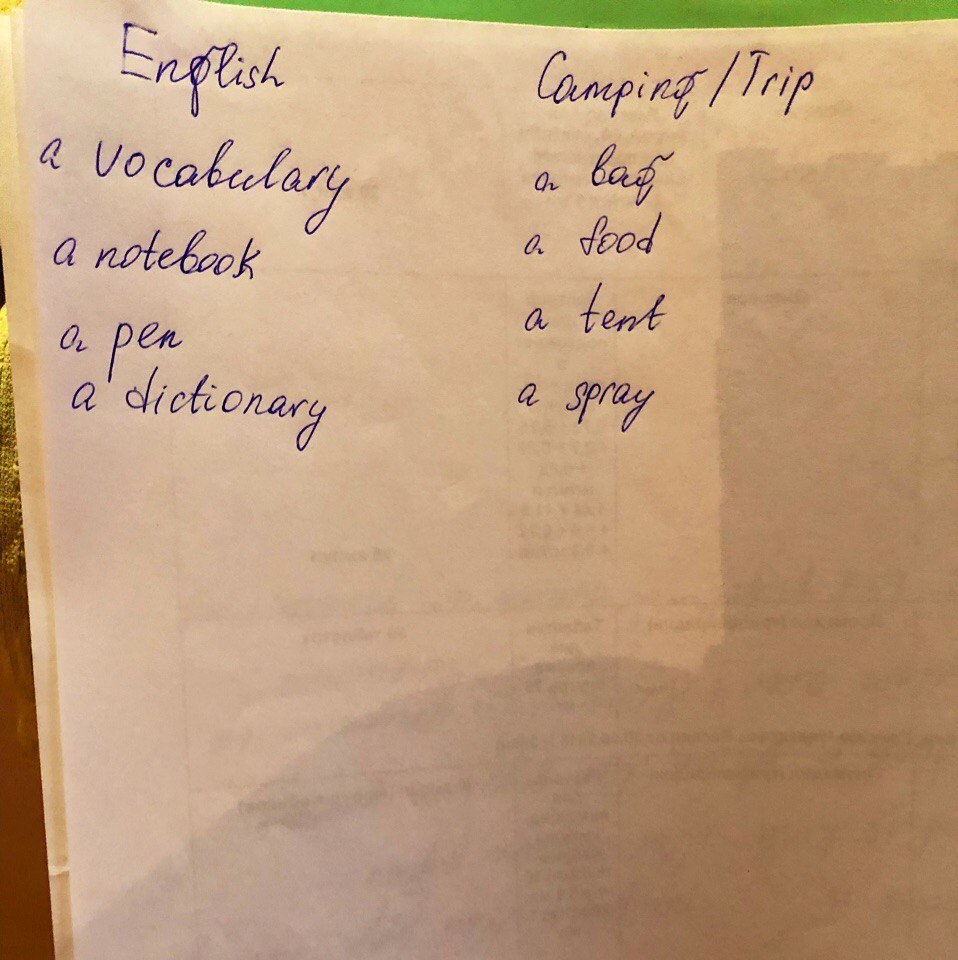 English
a vocabulary
a notebook
a pen
a dictionary
Camping/Trip
a bag
a food
a tent
a spray